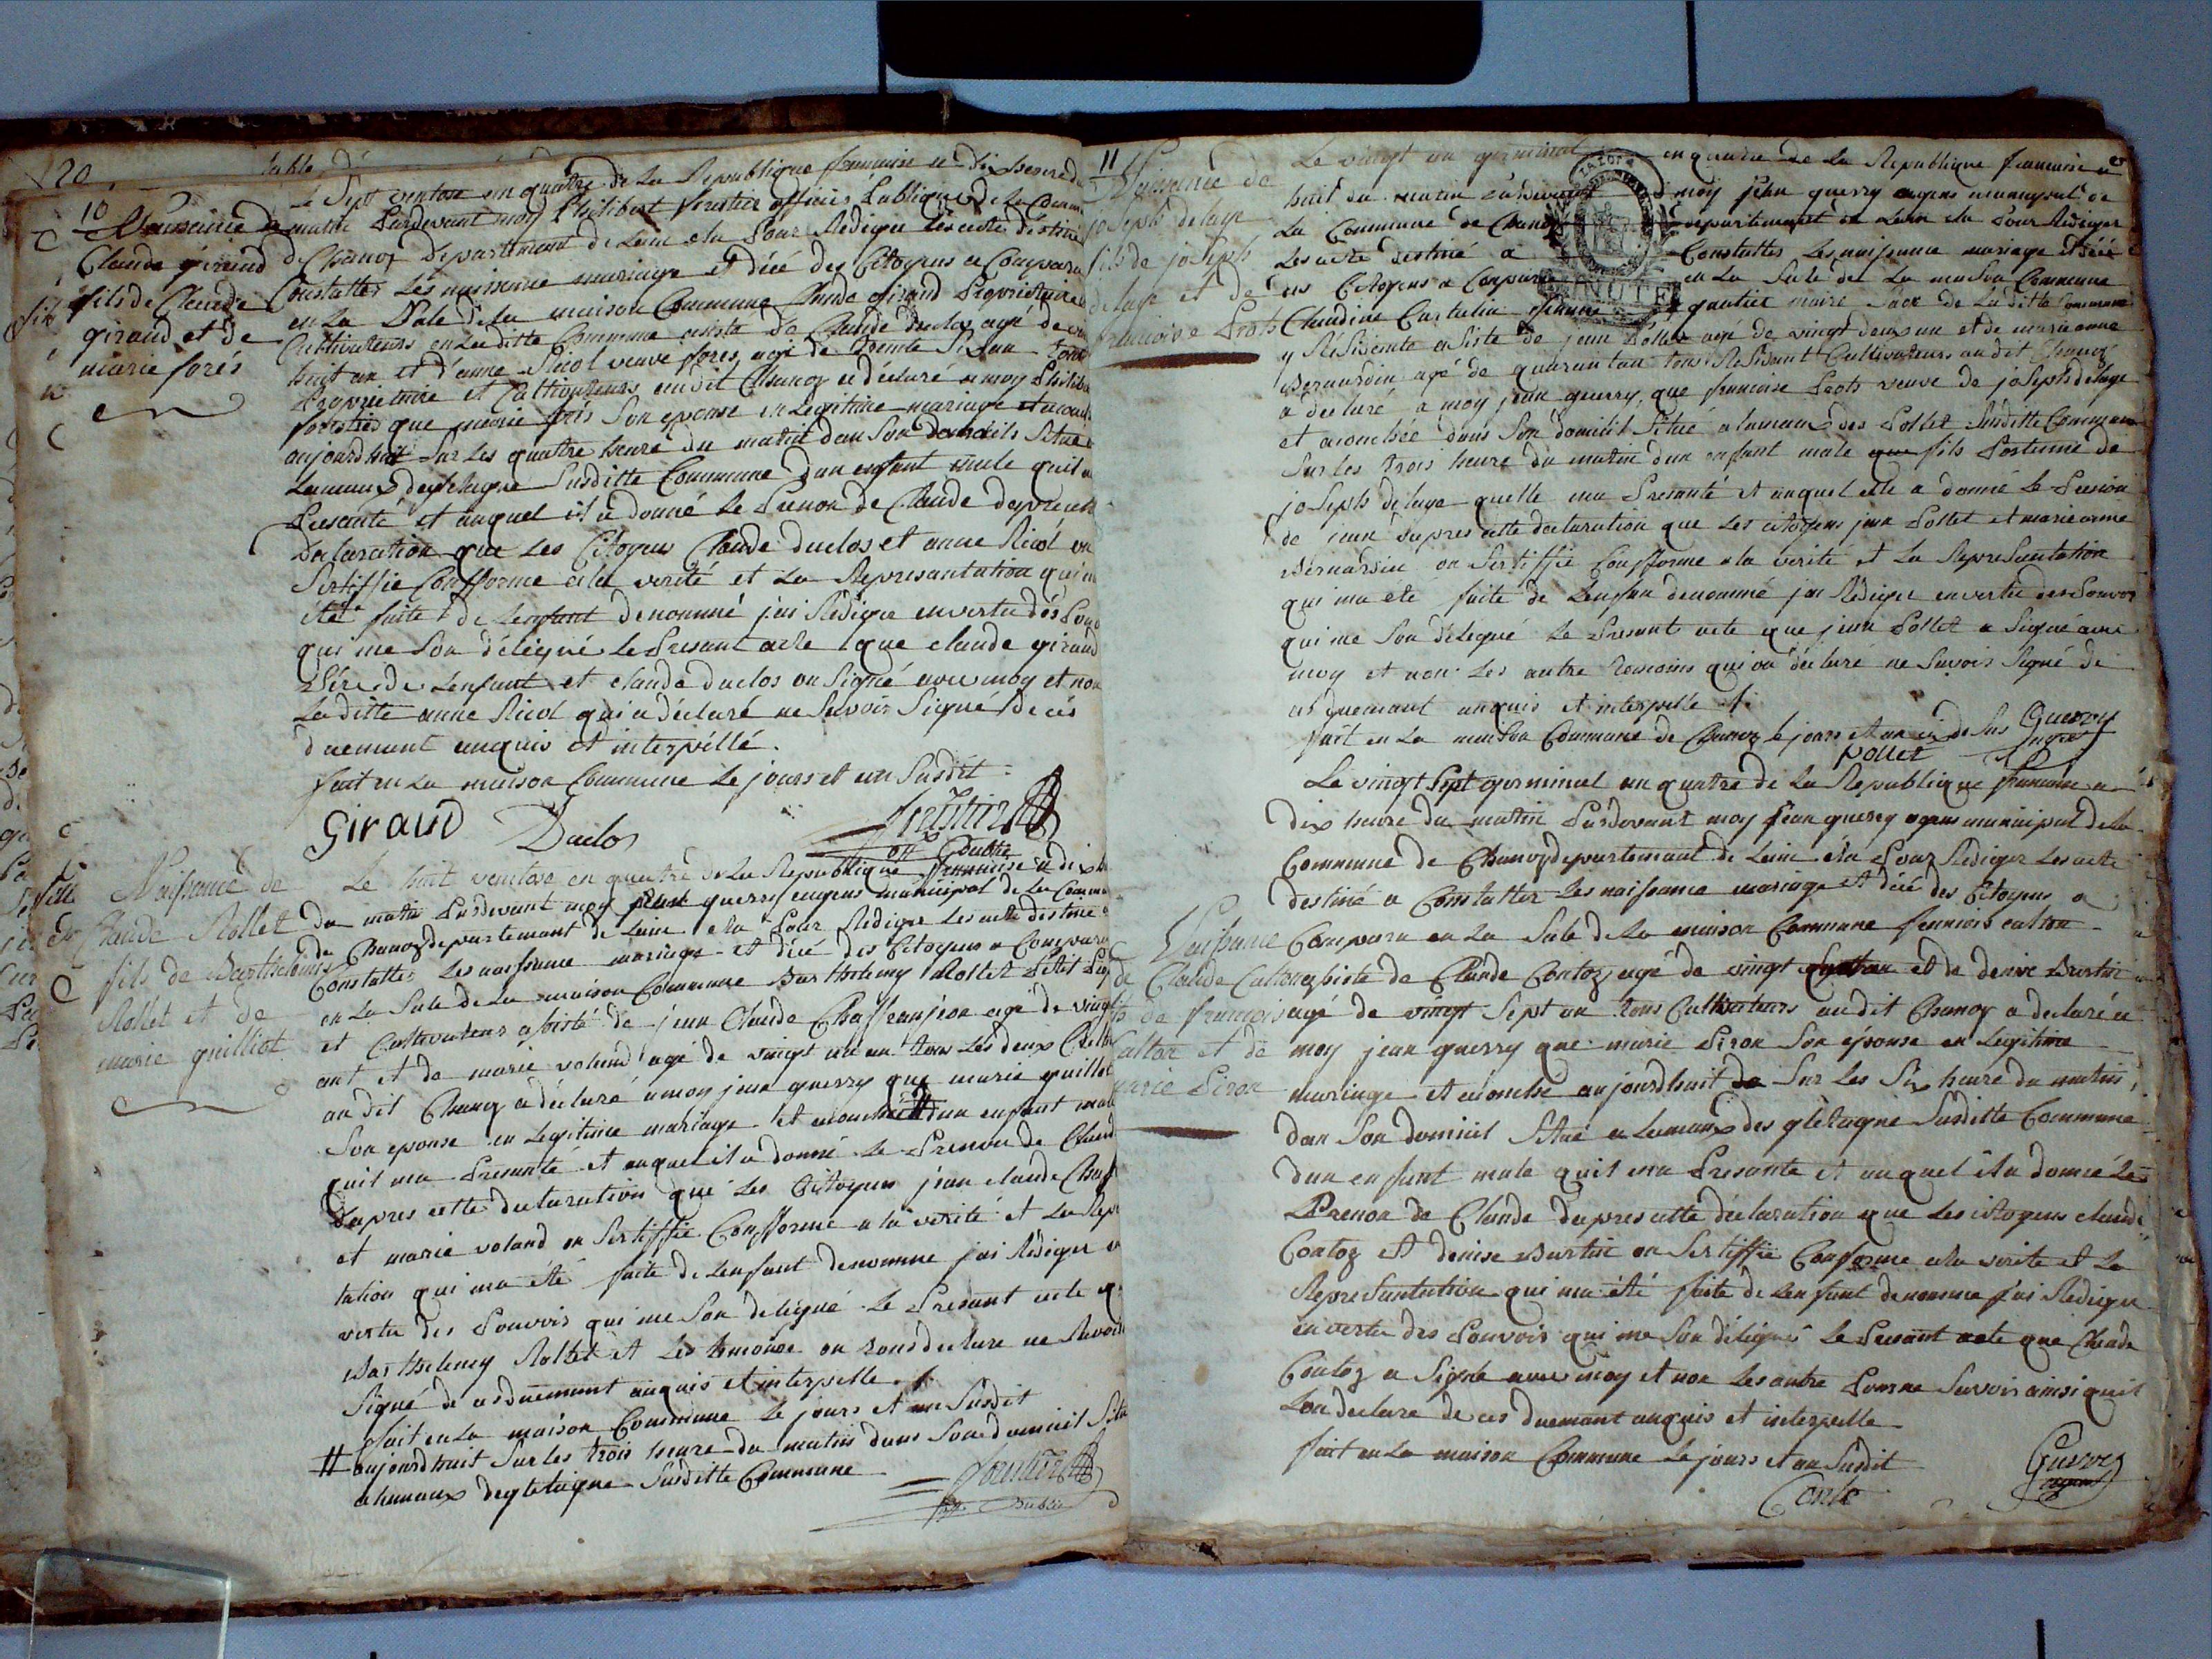 120
10
Naissance de
Claude giraud
fils de Claude
giraud et de
marie forés
Le Sept ventose en quatre de La Republique francaise a dix heure du
matin Pardevant moy Philibert forestier officier Publique de La Commune
de Chanoz departement de Lain elu Pour Rediger Les acte destiné
Constatter Les naissance mariage et décé des Citoyens a Comparu
en La Sale de la maison Commune Claude giraud Proprietaire
Cultivateurs en Laditte Commune assisté de Claude duclos agé de
huit an et d'anne Nicol veuve forés agé de trente Six an
Proprietaire et Cultivateurs audit Chanoz a déclaré a moy Philibert
forestier que marie forés Son epouse en Legitime mariage et acouché
aujourdhuit Sur Les quatre heure du matin dans Son domicils Situé
Lameaux desgletagne Susditte Commune dun enfant male quil
Presanté et auquel il a donné Le Prenon de Claude dapres cette
Declaration que Les Citoyens Claude duclos et anne Nicol on
Sertiffie Confforme a la verité et La Representation qui
eté faite de Lenfant denommé jai Rediger en vertu des
qui me Son délégué Le Presant acte que claude giraud
Pére de Lenfant et claude duclos on Signé avec moy et non
La ditte anne Nicol qui a déclaré ne Savoir Signé de ces
duement enquis et interpéllé.
fait en La maison Commune Le jours et an Susdit
Giraud Duclos forestier
Naissance de
Claude Rollet
fils de Barthelemis
Rollet et de
marie guilliot
Le huit ventose en quatre de La Republique francaise a dix
du matin Pardevant moy jean guerry agens municipal de La Commune
de Chanoz departemant de Lain elu Pour Rediger Les acte destiné
Constatter Les naissance mariage et décé des Citoyens a Comparu
en La Sale de La maison Commune Barthelemy Rollet Petit
et Cultivateurs assisté de jean Claude Chaffranjeon agé de vingt
ant et de marie voland agé de vingt un an tous Les deux
audit Chanoz a déclaré a moy jean guerry que marie guilliot
Son epouse en Legitime mariage et acouché # dun enfant male
quil ma Presanté et auquel il a donné Le Prenon de Claude
dapres cette declaration que Les Citoyens jean claude
et marie voland on Sertiffie Confforme a la verité et La
tation qui ma eté faite de Lenfant denomme jai Rediger
vertu des Pouvoir qui me Son delegué Le Presant acte
Barthelemy Rollet et Les temoins on tous declare ne Savoir
Signé de ces duemant enquis et interpelle
fait en La maison Commune Le jours et an Susdit
# aujourdhuit Sur Les trois heure du matin dans Son domicil
a lameaux desgletagne Susditte Commune
11
Naissance de
joseph delage
fils de joseph
delage et de
francoise Prost
Le vingt un germinal en quatre de La Republique francaise a
huit du matin Pardevant moy jean guerry agens municipal de
La Commune de Chanoz departement de Lain elu Pour Rediger
Les acte destiné a Constatter Les naissance mariage et décé
des Citoyens a Comparu en La Sale de La maison Commune
Claudine Cartalin femme gautier maire Sage de La ditte Commune
y Residente assisté de jean Pollet agé de vingt deux an et de marie anne
Bernardin agé de quarantan tous Residant Cultivateurs au dit Chanoz
a déclaré a moy jean guerry, que francoise Prost veuve de joseph delage
et acouchée dans Son domicil Situé a lameaux des Pollet Susditte Commune
Sur les trois heure du matin dun enfant male que fils Postume de
joseph delage quelle ma Presanté et auquel elle a donné Le Prenon
de jean dapres cette declaration que Les citoyens jean Pollet et marie anne
Bernardin on Sertiffie Confforme a la verité et La Representation
qui ma eté faite de Lenfan denommé jai Rediger en vertu des Pouvoir
qui me Son delegué Le Presant acte que jean Pollet a Signé avec
moy et non Les autre temoins qui on déclaré ne Savoir Signé de
ces duemant enquis et interpelle
fait en La maison Commune de Chanoz Le jours et an ci de Sus Guerry
Pollet
Naissance
de Claude Cattoz
fils de francois
Cattoz et de
marie Piron
Le vingt Sept germinal an quatre de La Republique francaise a
dix heure du matin Pardevant moy jean guerry agens municipal de La
Commune de Chanoz departemant de Lain elu Pour Rediger Les acte
destiné a Constatter Les naissance mariage et décé des Citoyens a
Comparu en La Sale de La maison Commune francois catton
assisté de Claude Contoz agé de vingt quatre et de denise
agé de vingt Sept an tous Cultivateurs au dit Chanoz a declaré a
moy jean guerry que marie Piron Son épouse en Legitime
mariage et acouché aujourdhuit de Sur Les Six heure du matin
dan Son domicil Situé a Lameaux des gletagne Susditte Commune
dun enfant male quil ma Presante et auquel il a donné Le
Prenon de Claude dapres cette déclaration que Les citoyens claude
Contoz et denise on Sertiffie Conforme a la verite et La
Representation qui ma été faite de Lenfant denomme jai Rediger
en vertu des Pouvoir qui me Son délégué Le Presant acte que Claude
Contoz a Signé avec moy et non Les autre Pour ne Savoir ainsi quil
Lon declare de ces duemant enquis et interpelle
fait en La maison Commune Le jours et an Susdit
Guerry
agent